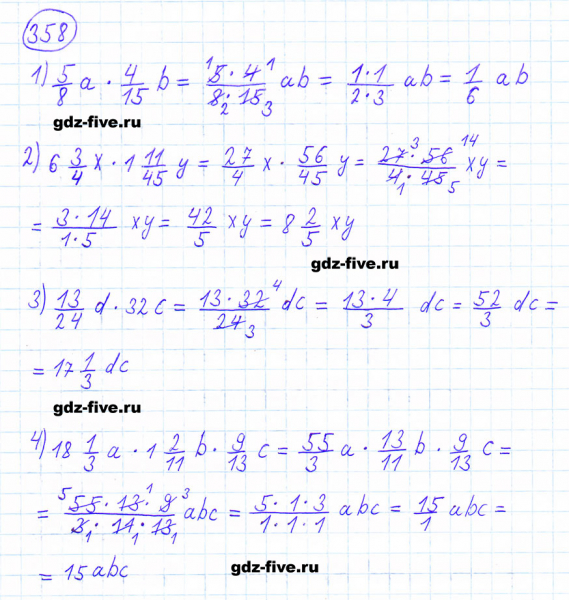 358
1) 5/8 a · 4/15 b = 5·4/8·15 ab = 1·1/2·3 ab = 1/6 ab
gdz-five.ru
2) 6 3/4 x · 1 11/45 y = 27/4 x · 56/45 y = 27·56/4·45 xy =
= 3·14/1·5 xy = 42/5 xy = 8 2/5 xy
gdz-five.ru
3) 13/24 d · 32 c = 13·32/24 dc = 13·4/3 dc = 52/3 dc =
= 17 1/3 dc
gdz-five.ru
4) 18 1/3 a · 1 2/11 b · 9/13 c = 55/3 a · 13/11 b · 9/13 c =
= 55·13·9/3·11·13 abc = 5·1·3/1·1·1 abc = 15/1 abc =
= 15 abc
gdz-five.ru